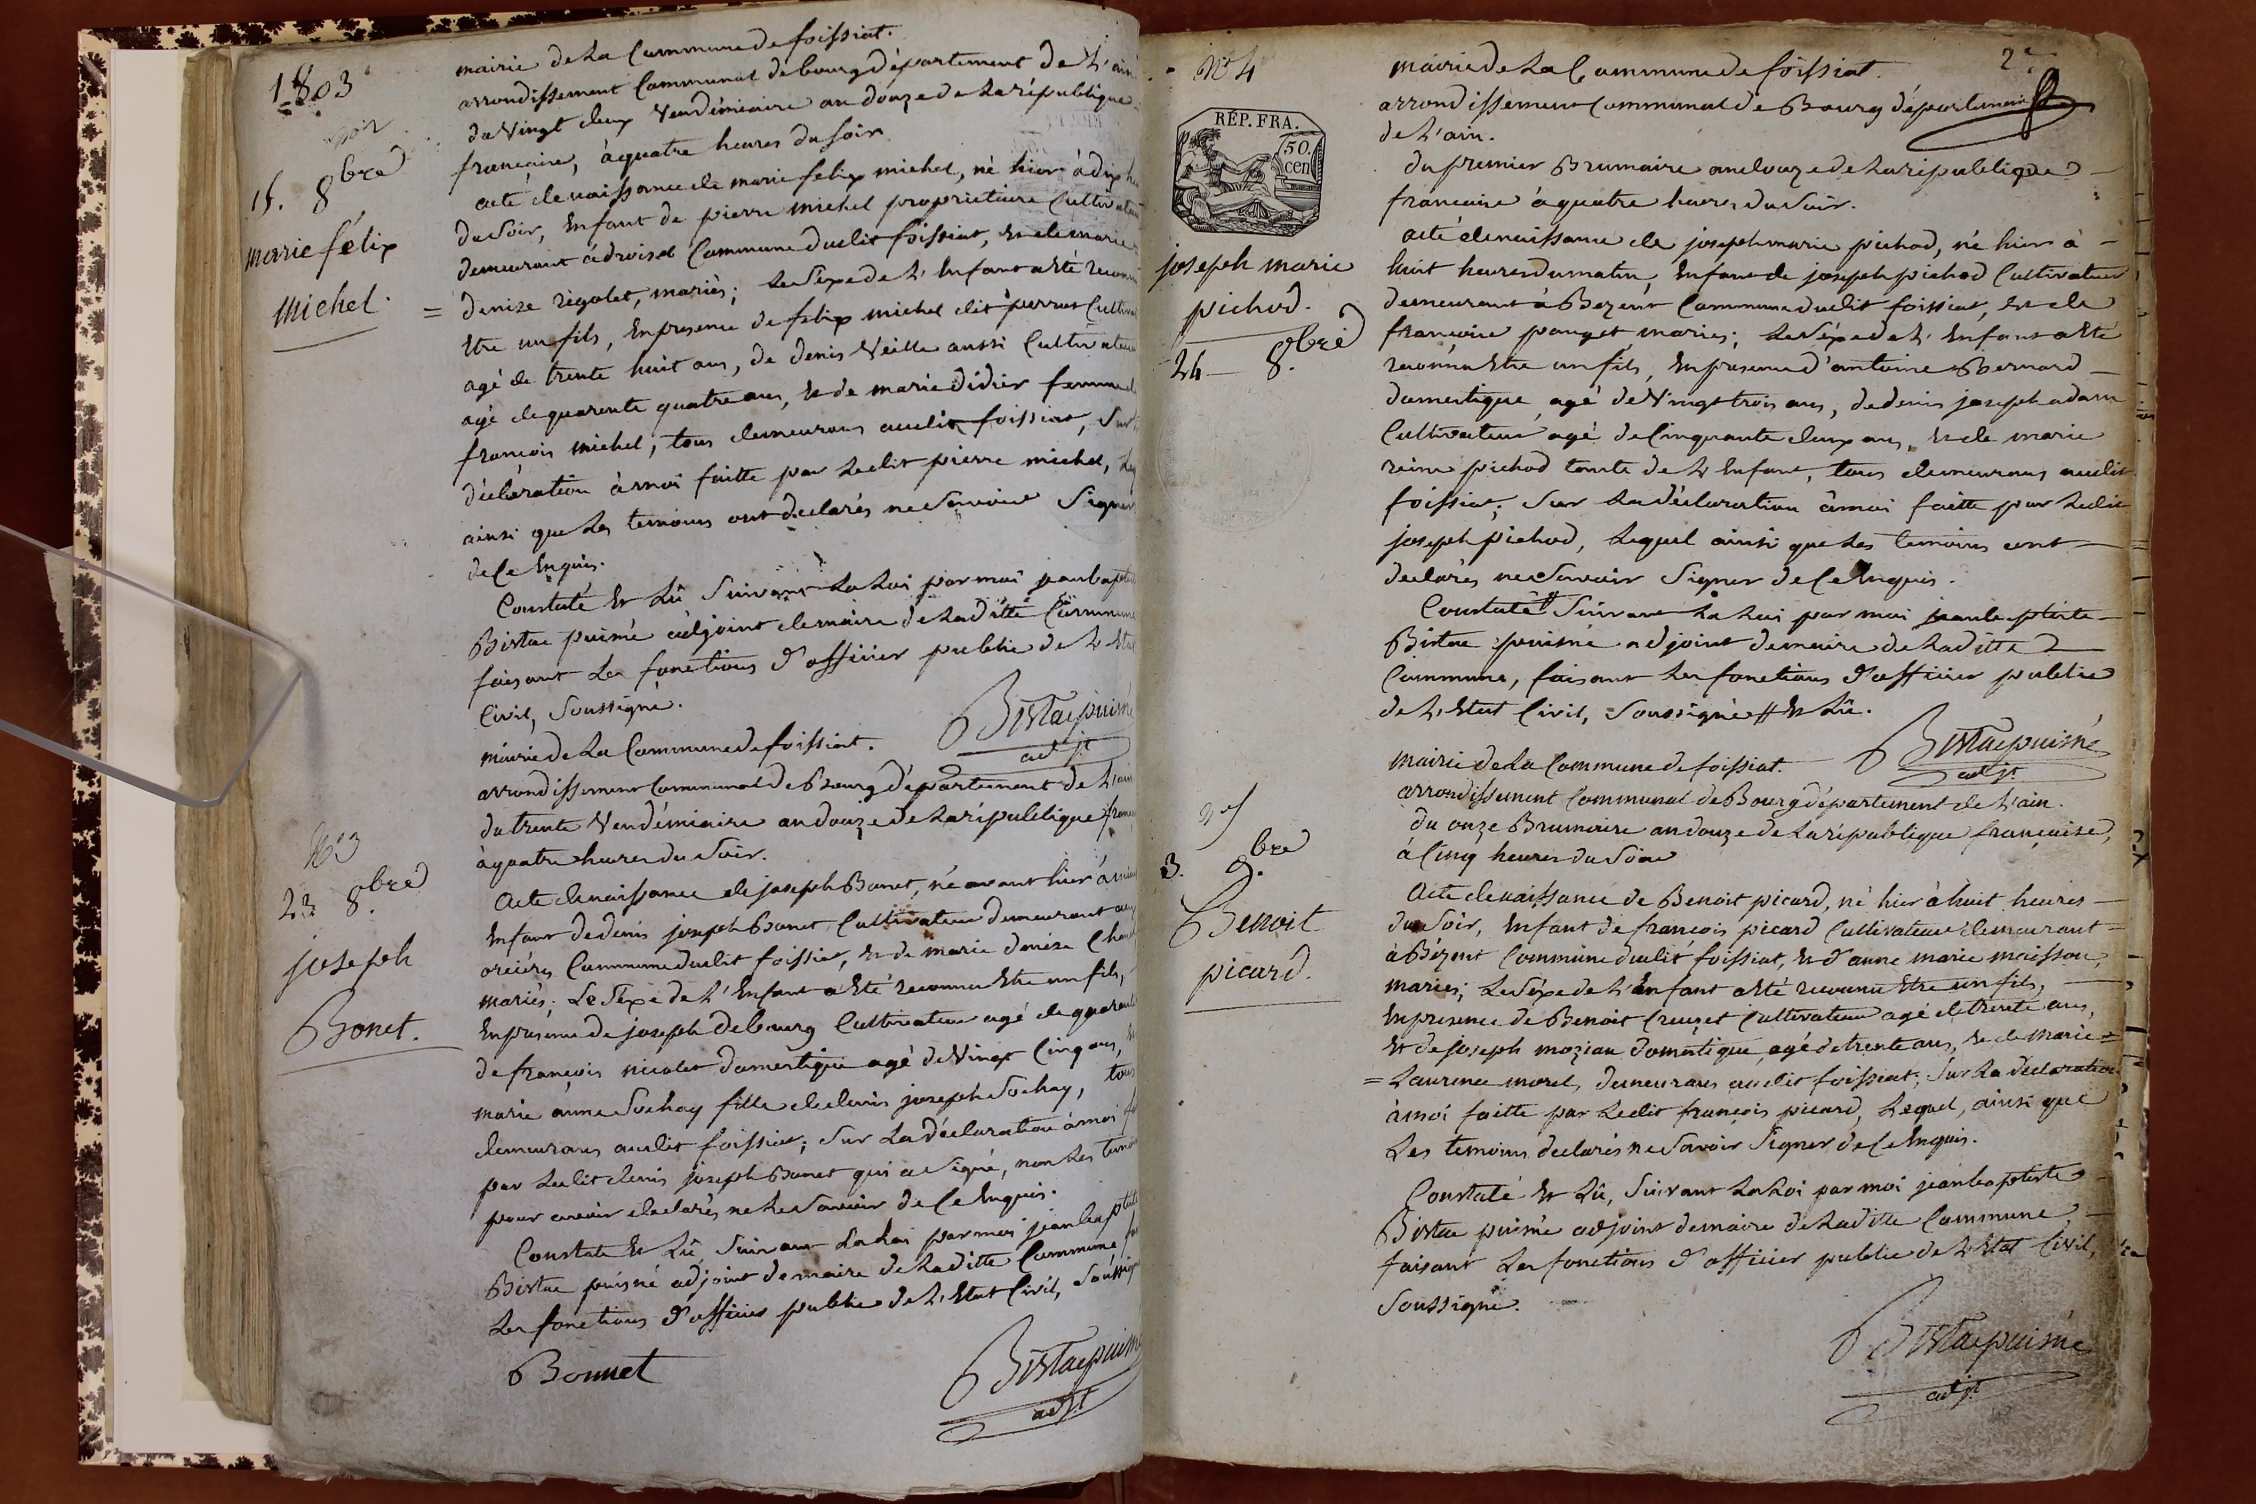 1803
15. 8bre
marie félix
michel.
mairie de La Commune de foissiat.
arrondissement Communal de bourg département de L'ain
du Vingt deux Vendémiaire an douze de La république
francaise, à quatre heures du soir
acte de naissance de marie felix michel, né hier à dix
du Soir, Enfant de pierre michel propriétaire Cultivateur
demeurant à Commune dudit foissiat, et de marie
= denize rigolet, mariés; Le Séxe de L'Enfant a Eté reconnu
Etre un fils, En presence de felix michel dit perrus
agé de trente huit ans, de denis Veille aussi Cultivateur
agé de quarente quatre ans, et de marie didier femme
françois michel, tous demeurans audit foissiat, Sur
déclaration à moi faitte par Ledit pierre michel,
ainsi que Les temoins ont declarés ne Savoir Signer
de Ce Enquis.
Constaté et Lû Suivant La Loi par moi jean baptiste
Bistac puisné adjoint de maire de Laditte Commune
faisant Les fonctions d'officier public de L'Etat
Civil, Soussigné.
Bistac puisné
adjt
N°3
22 8bre
joseph
Bonet.
mairie de La Commune de foissiat.
arrondissement Communal de Bourg département de L'ain
du trente Vendémiaire an douze de La république
à quatre heures du Soir.
Acte de naissance de joseph Bonet, né avant hier à
Enfant de denis joseph Bonet, Cultivateur demeurant aux
oriéres Commune dudit foissiat, et de marie denize
mariés; Le Séxe de L'Enfant a Eté reconnu Etre un fils,
En presence de joseph debourg Cultivateur agé de
de françois nicolet domestique agé de Vingt Cinq ans,
marie anne Sochay fille de denis joseph Sochay, tous
demeurans audit foissiat; Sur La déclaration à moi
par Ledit denis joseph Bonet qui a Signé, non Les
pour avoir declarés ne Le Savoir de Ce Enquis.
Constaté et Lû, Suivant La Loi par moi jean baptiste
Bistac puisné adjoint de maire de Laditte Commune
Les fonctions d'officier public de L'Etat Civil,
Bonnet
Bistac puisné
adjt
2e
N°4
RÉP. FRA.
50.
cen
joseph marie
pichod.
24 8bre
mairie de La Commune de foissiat.
arrondissement Communal de Bourg département
de L'ain.
du premier Brumaire an douze de La république
francaise à quatre heures du Soir.
acte de naissance de joseph marie pichod, né hier à
huit heures du matin, Enfant de joseph pichod Cultivateur
demeurant à Bezent Commune dudit foissiat, et de
françoise pouget mariés; Le Séxe de L'Enfant a Eté
reconnu Etre un fils, En presence d'antoine Bernard
domestique agé de Vingt trois ans, de denis joseph adam
Cultivateur agé de Cinquante deux ans, et de marie
reine pichod tante de L'Enfant, tous demeurans audit
foissiat; Sur La déclaration à moi faitte par Ledit
joseph pichod, Lequel ainsi que Les temoins ont
declarés ne Savoir Signer de Ce Enquis.
Constaté # Suivant La Loi par moi jean baptiste
Bistac puisné adjoint de maire de Laditte
Commune, faisant Les fonctions d'officier public
de L'Etat Civil, Soussigné # et Lû.
Bistac puisné
adjt
3. 9.bre
Benoit
picard.
mairie de La Commune de foissiat.
arrondissement Communal de Bourg département de L'ain.
du onze Brumaire an douze de La république française,
à Cinq heures du Soir
Acte de naissance de Benoit picard, né hier à huit heures
du Soir, Enfant de françois picard Cultivateur demeurant
à Bézent Commune dudit foissiat, et d'anne marie moisson,
mariés; Le Séxe de L'Enfant a Eté reconnu Etre un fils,
En presence de Benoit Creuzet Cultivateur agé de trente ans,
et de Joseph mozian domestique, agé de trente ans, et de marie
= Laurence morel, demeurans audit foissiat; Sur La déclaration
à moi faitte par Ledit françois picard, Lequel, ainsi que
Les temoins declarés ne Savoir Signer de Ce Enquis.
Constaté et Lû, Suivant La Loi par moi jean baptiste
Bistac puisné adjoint de maire de Laditte Commune
faisant Les fonctions d'officier public de L'Etat Civil,
Soussigné.
Bistac puisné
adjt